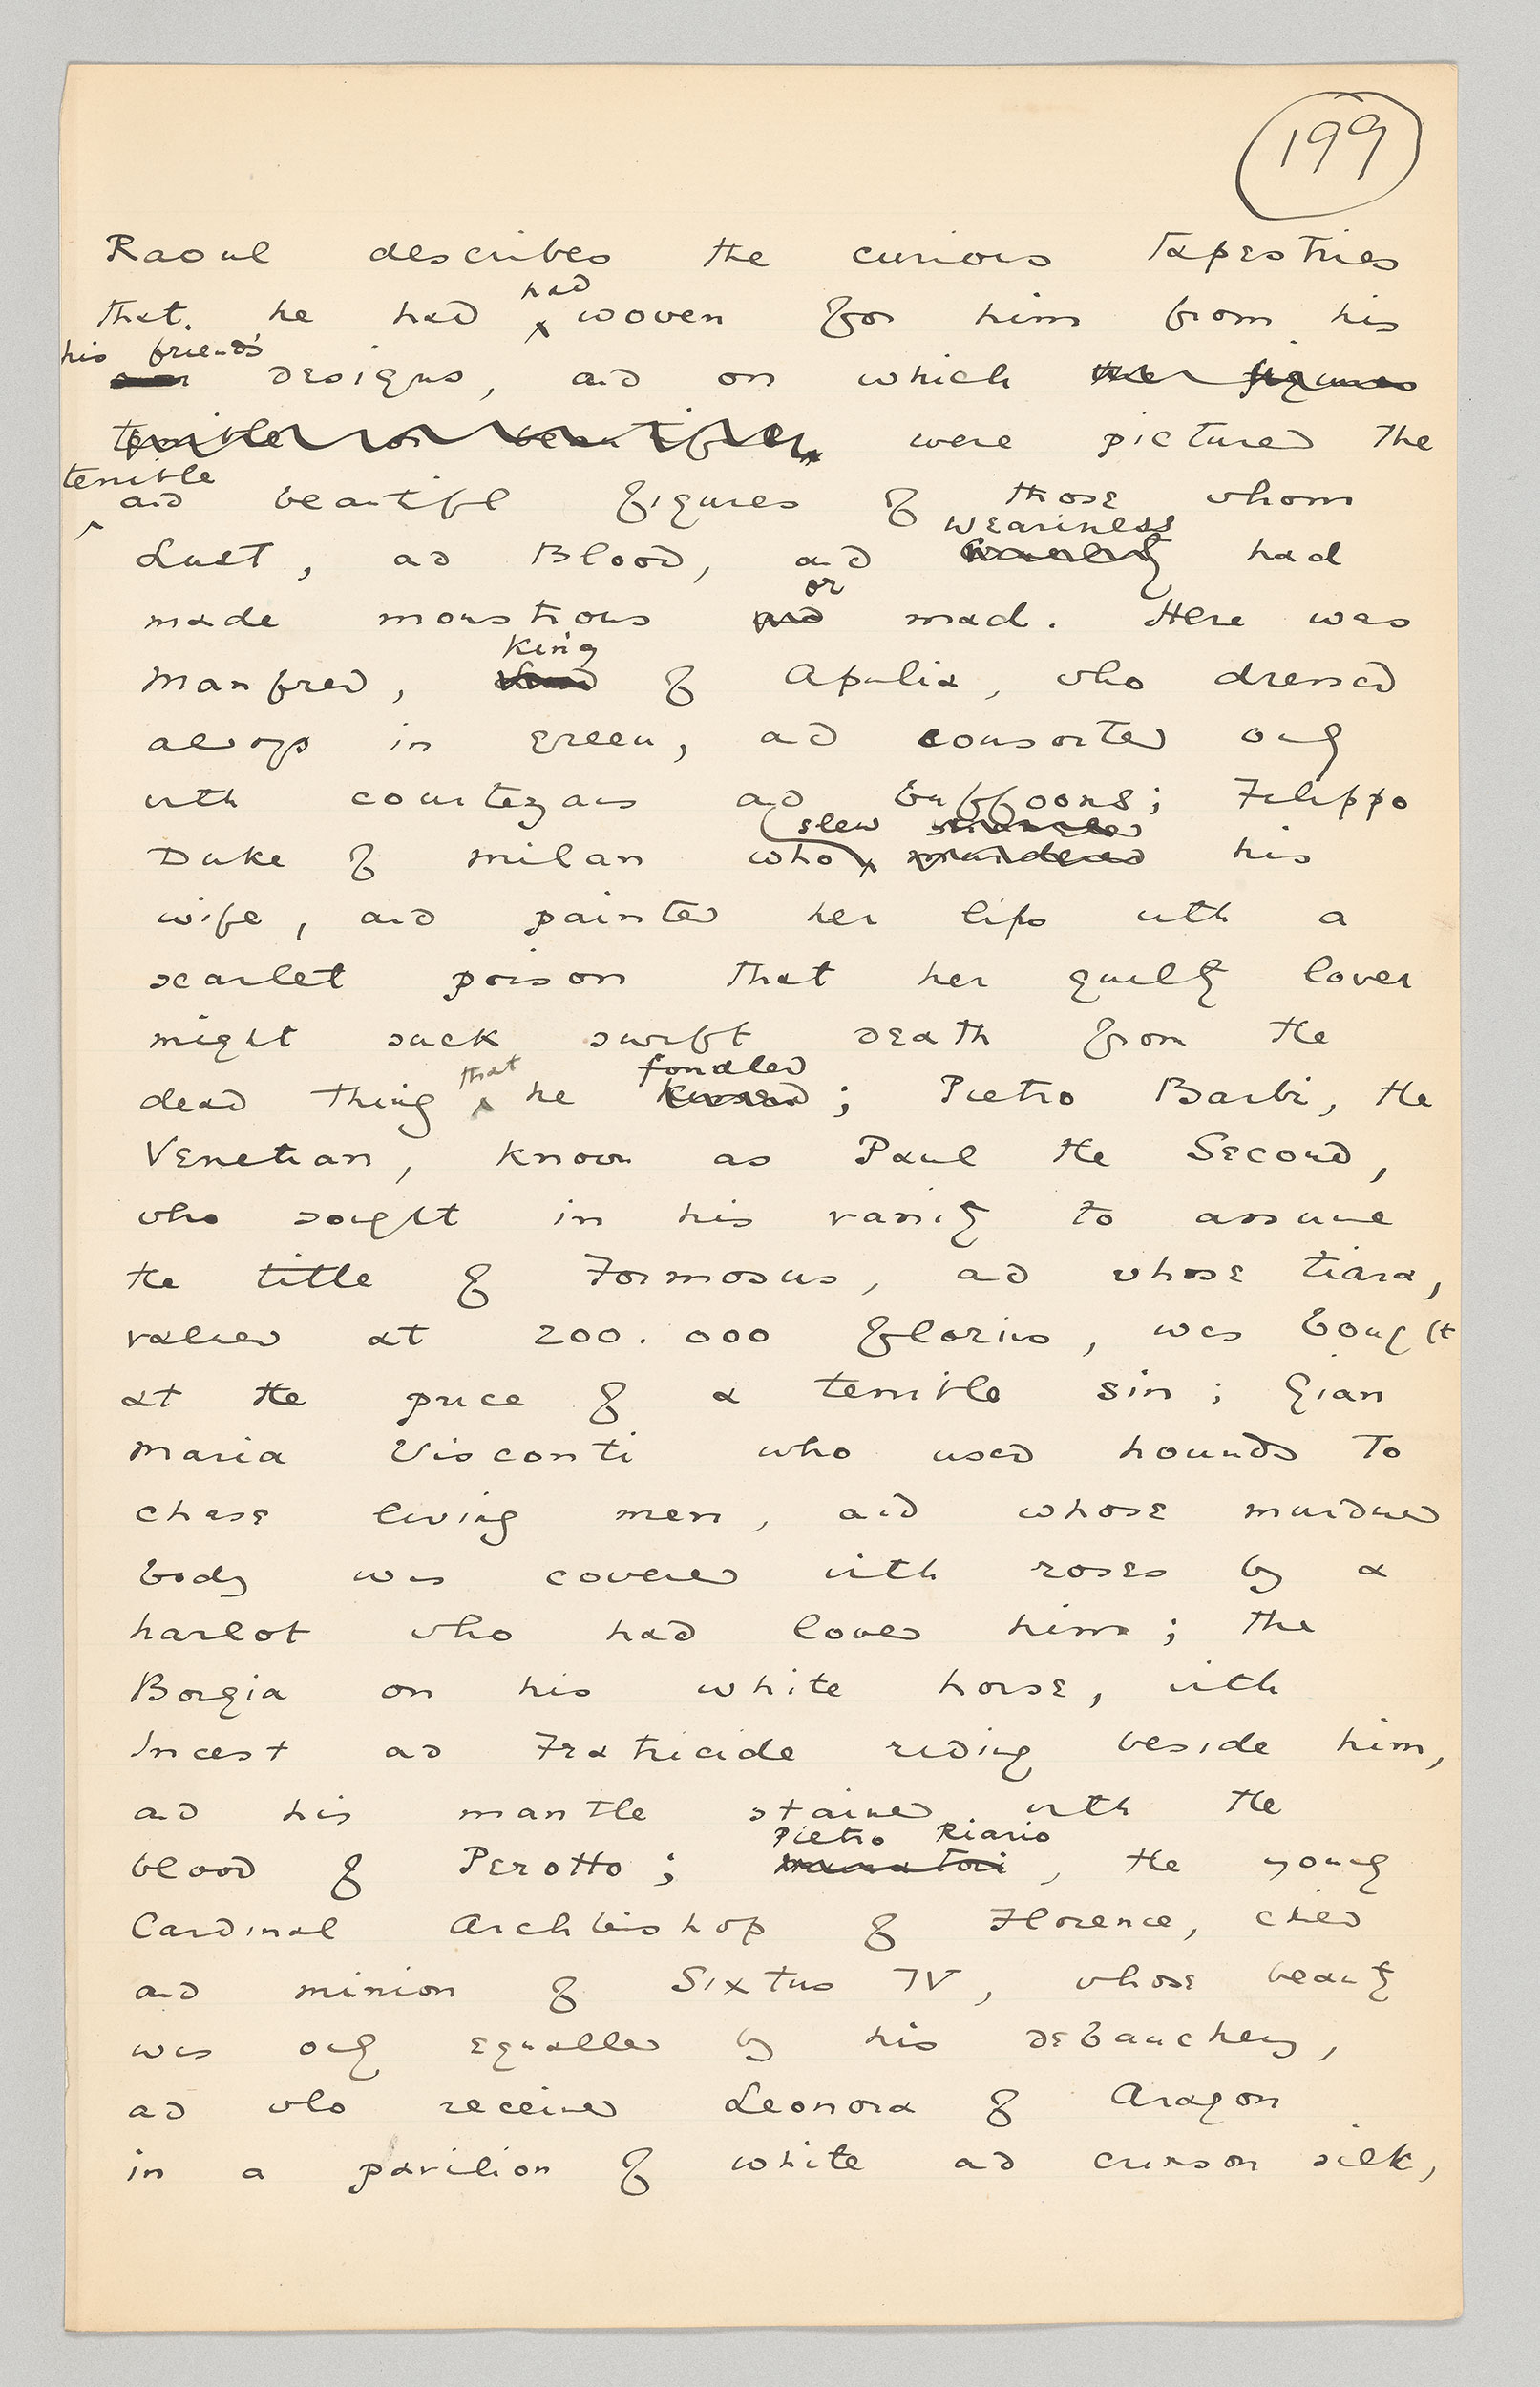 199
Raoul describes the curious tapestries
had
that he had woven for him from his
his friends'
designs, and on which the figures
terrible or beautiful were pictured the
terrible
and beautiful figures of those whom
weariness
Lust, and Blood, and had
or
made monstrous and mad. Here was
King
Manfred, of Apulia, who dressed
always in green, and consorted only
with courtezans and buffoons; Filippo
slew
Duke of Milan who murdered his
wife, and painted her lips with a
scarlet poison that her guilty lover
might suck swift death from the
that fondled
dead thing he kissed; Pietro Barbi, the
Venetian, known as Paul the Second,
who sought in his vanity to assume
the title of Formosus, and whose tiara,
valued at 200.000 florins, was bought
at the price of a terrible sin; Gian
Maria Visconti who used hounds to
chase living men, and whose murdered
body was covered with roses by a
harlot who had loved him; the
Borgia on his white horse, with
Incest and Fratricide riding beside him,
and his mantle stained with the
Pietro Riario
blood of Perotto; , the young
Cardinal Archbishop of Florence, child
and minion of Sixtus IV, whose beauty
was only equalled by his debauchery,
and who received Leonora of Aragon
in a pavilion of white and crimson silk,